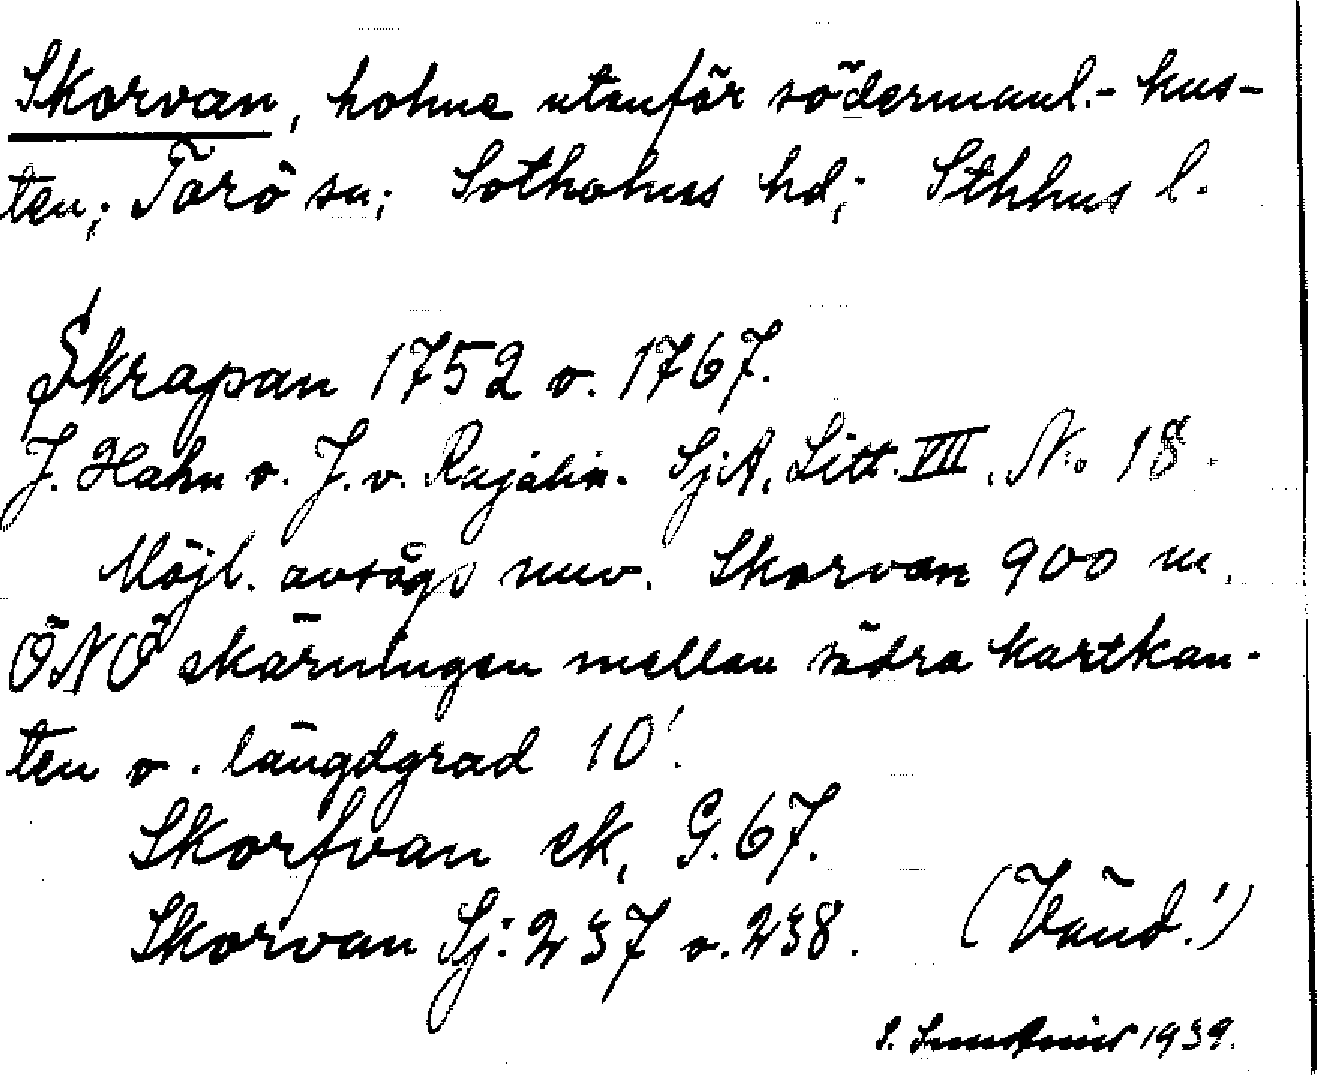 Skorvan, holme utanför södermanl.- kus-
ten; Torö sn; Sotholms hd; Sthlms l.
Skrapan 1752 o. 1767.
J. Hahn o. J. v. Rajalin. SjA, Litt. VII. No 18.
Möjl. avsågs nuv. Skorvan 900 m.
ÖNÖ skärningen mellan södra kartkan-
ten o. längdgrad 10'.
Skorfvan sk, G. 67.
Skorvan Sj: 237 o. 238. (Vänd!)
S. 1939.